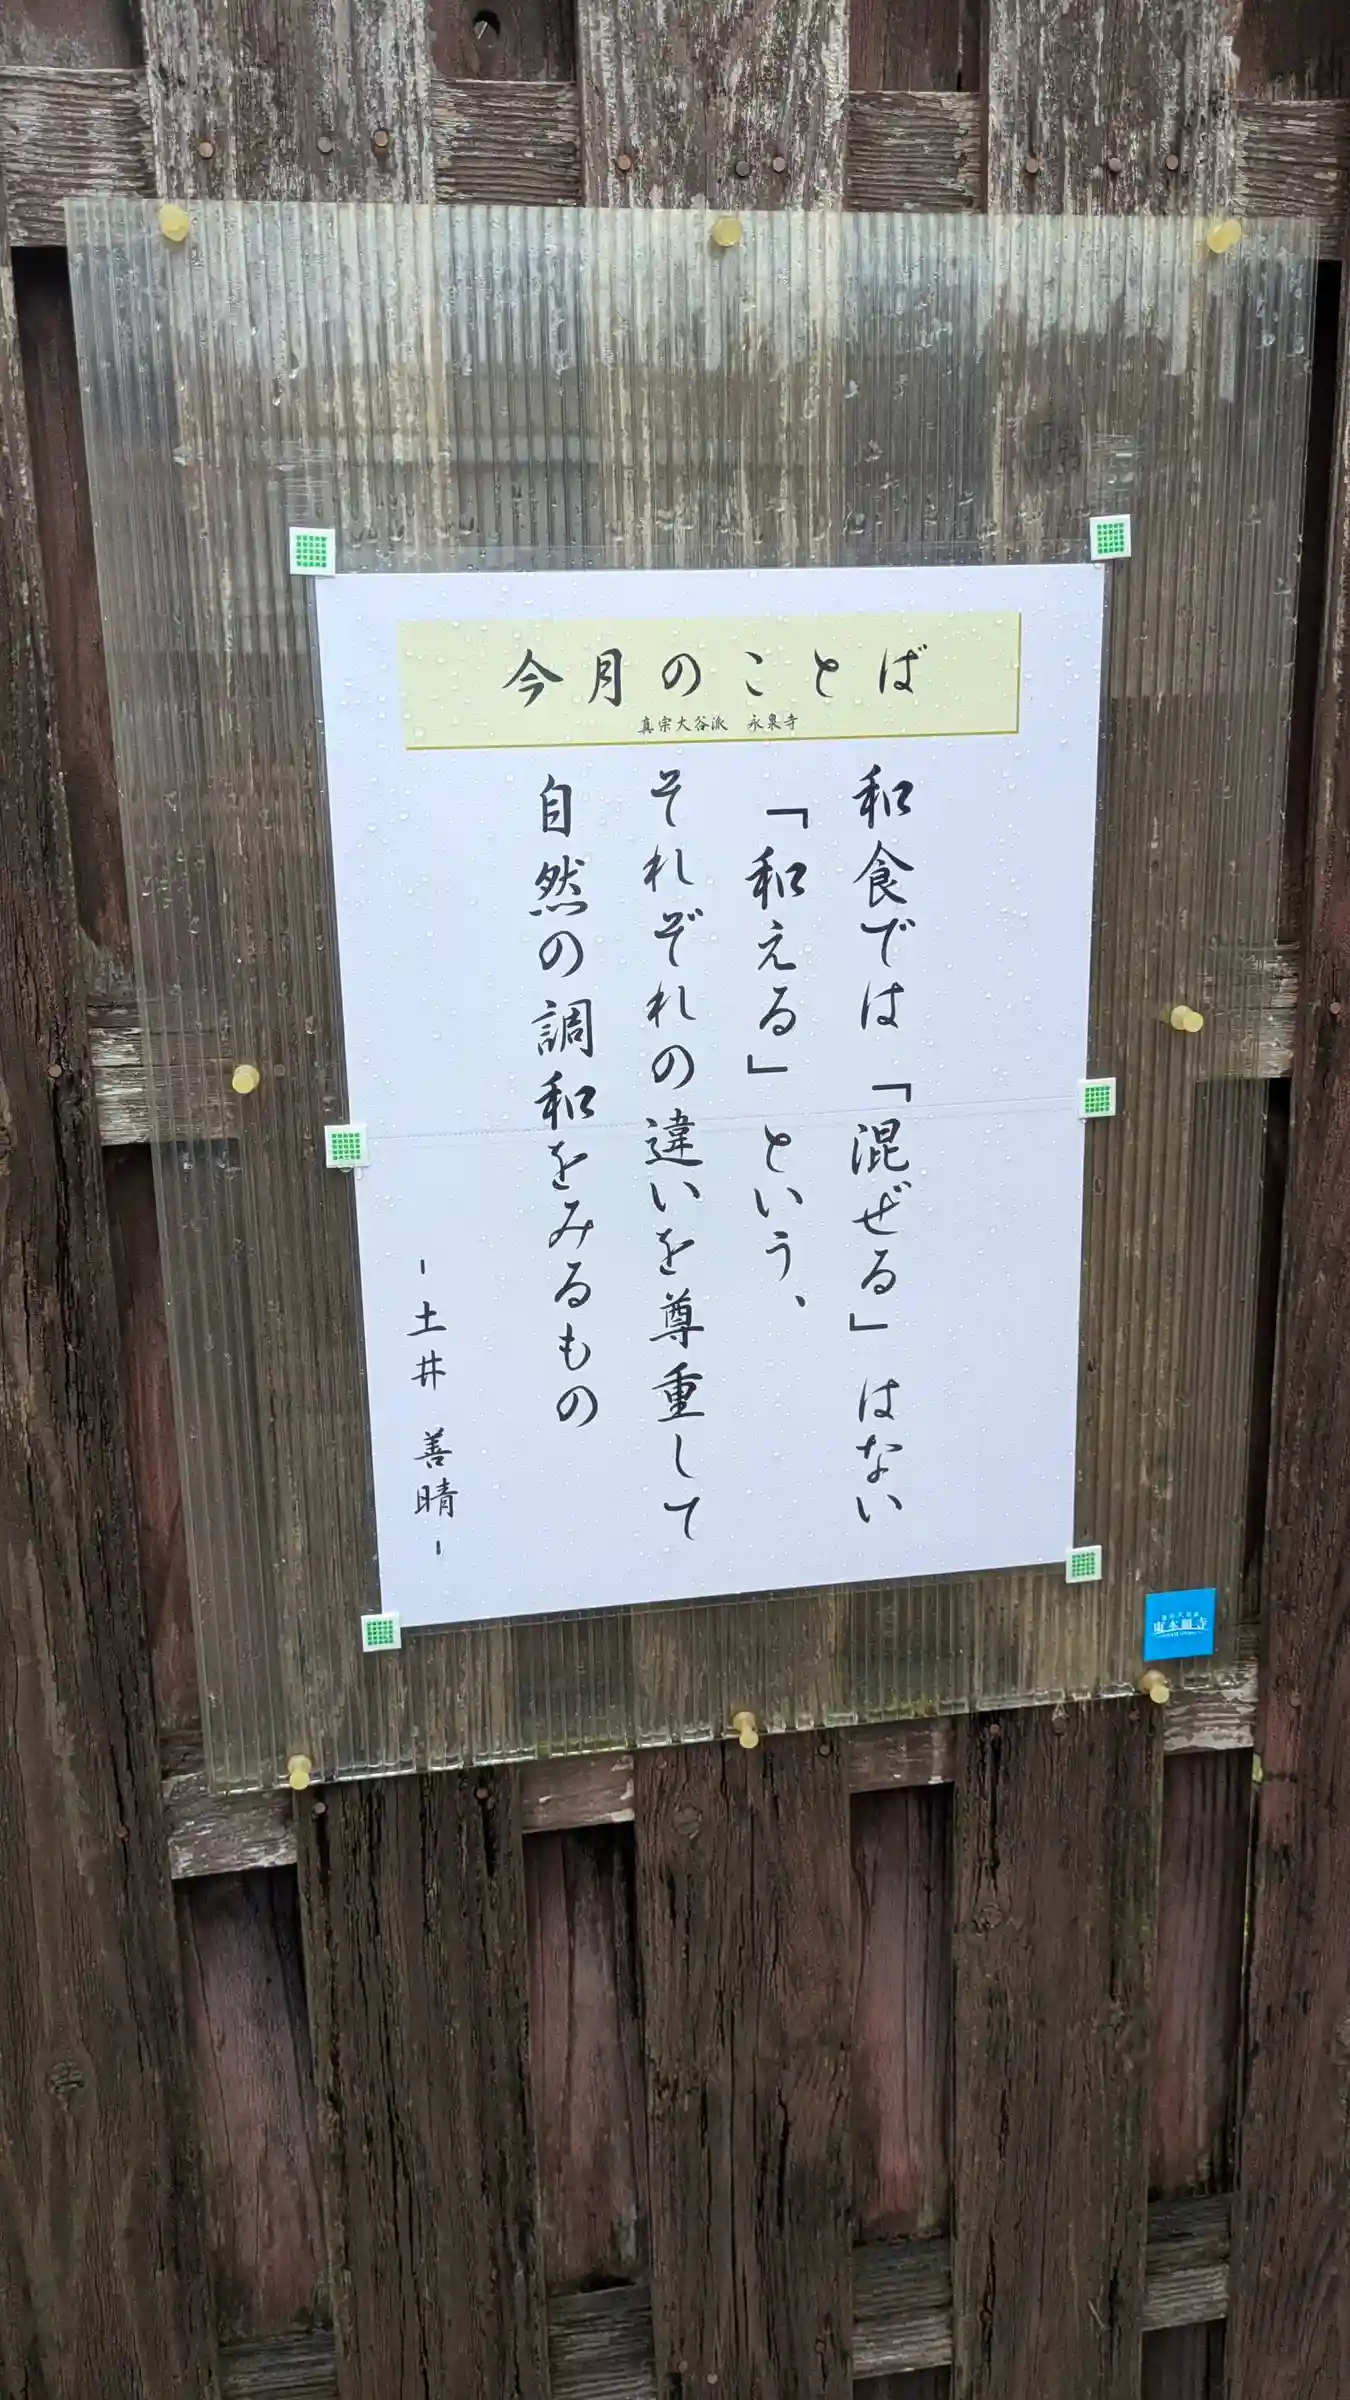 今月のことば
真宗大谷派 永泉寺
和食では「混ぜる」はない
「和える」という、
それぞれの違いを尊重して
自然の調和をみるもの
-土井 善晴-
東本願寺